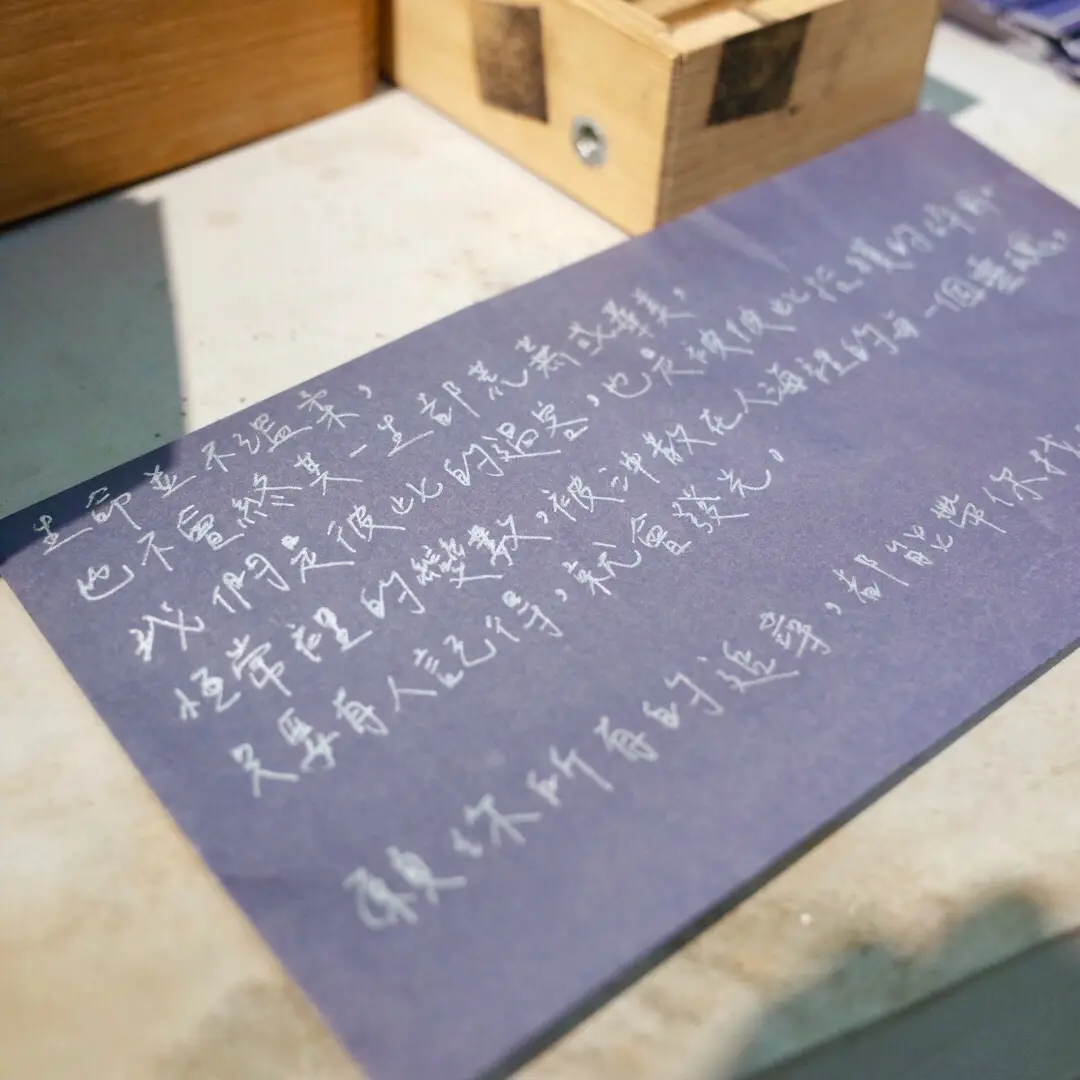 生命並不溫柔，
也不會終其一生都荒蕪或華美，
我們是彼此的過客，也是被彼此拉扯的
恆常裡的變數，被沖散在人海裡的每一個靈魂，
只要有人記得，就會發光。
願你所有的追尋，都能帶你找